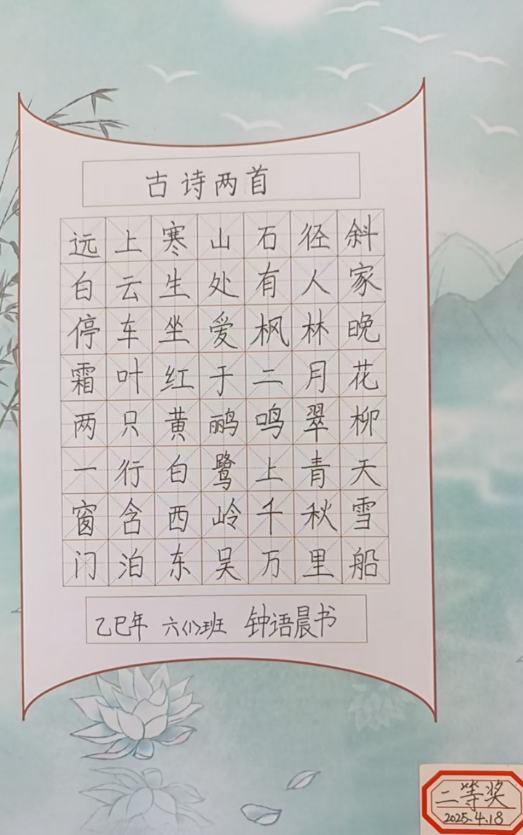 古诗两首
远上寒山石径斜
白云生处有人家
停车坐爱枫林晚
霜叶红于二月花
两只黄鹂鸣翠柳
一行白鹭上青天
窗含西岭千秋雪
门泊东吴万里船
乙巳年 六(1)班 钟语晨书
二等奖
2025.4.18